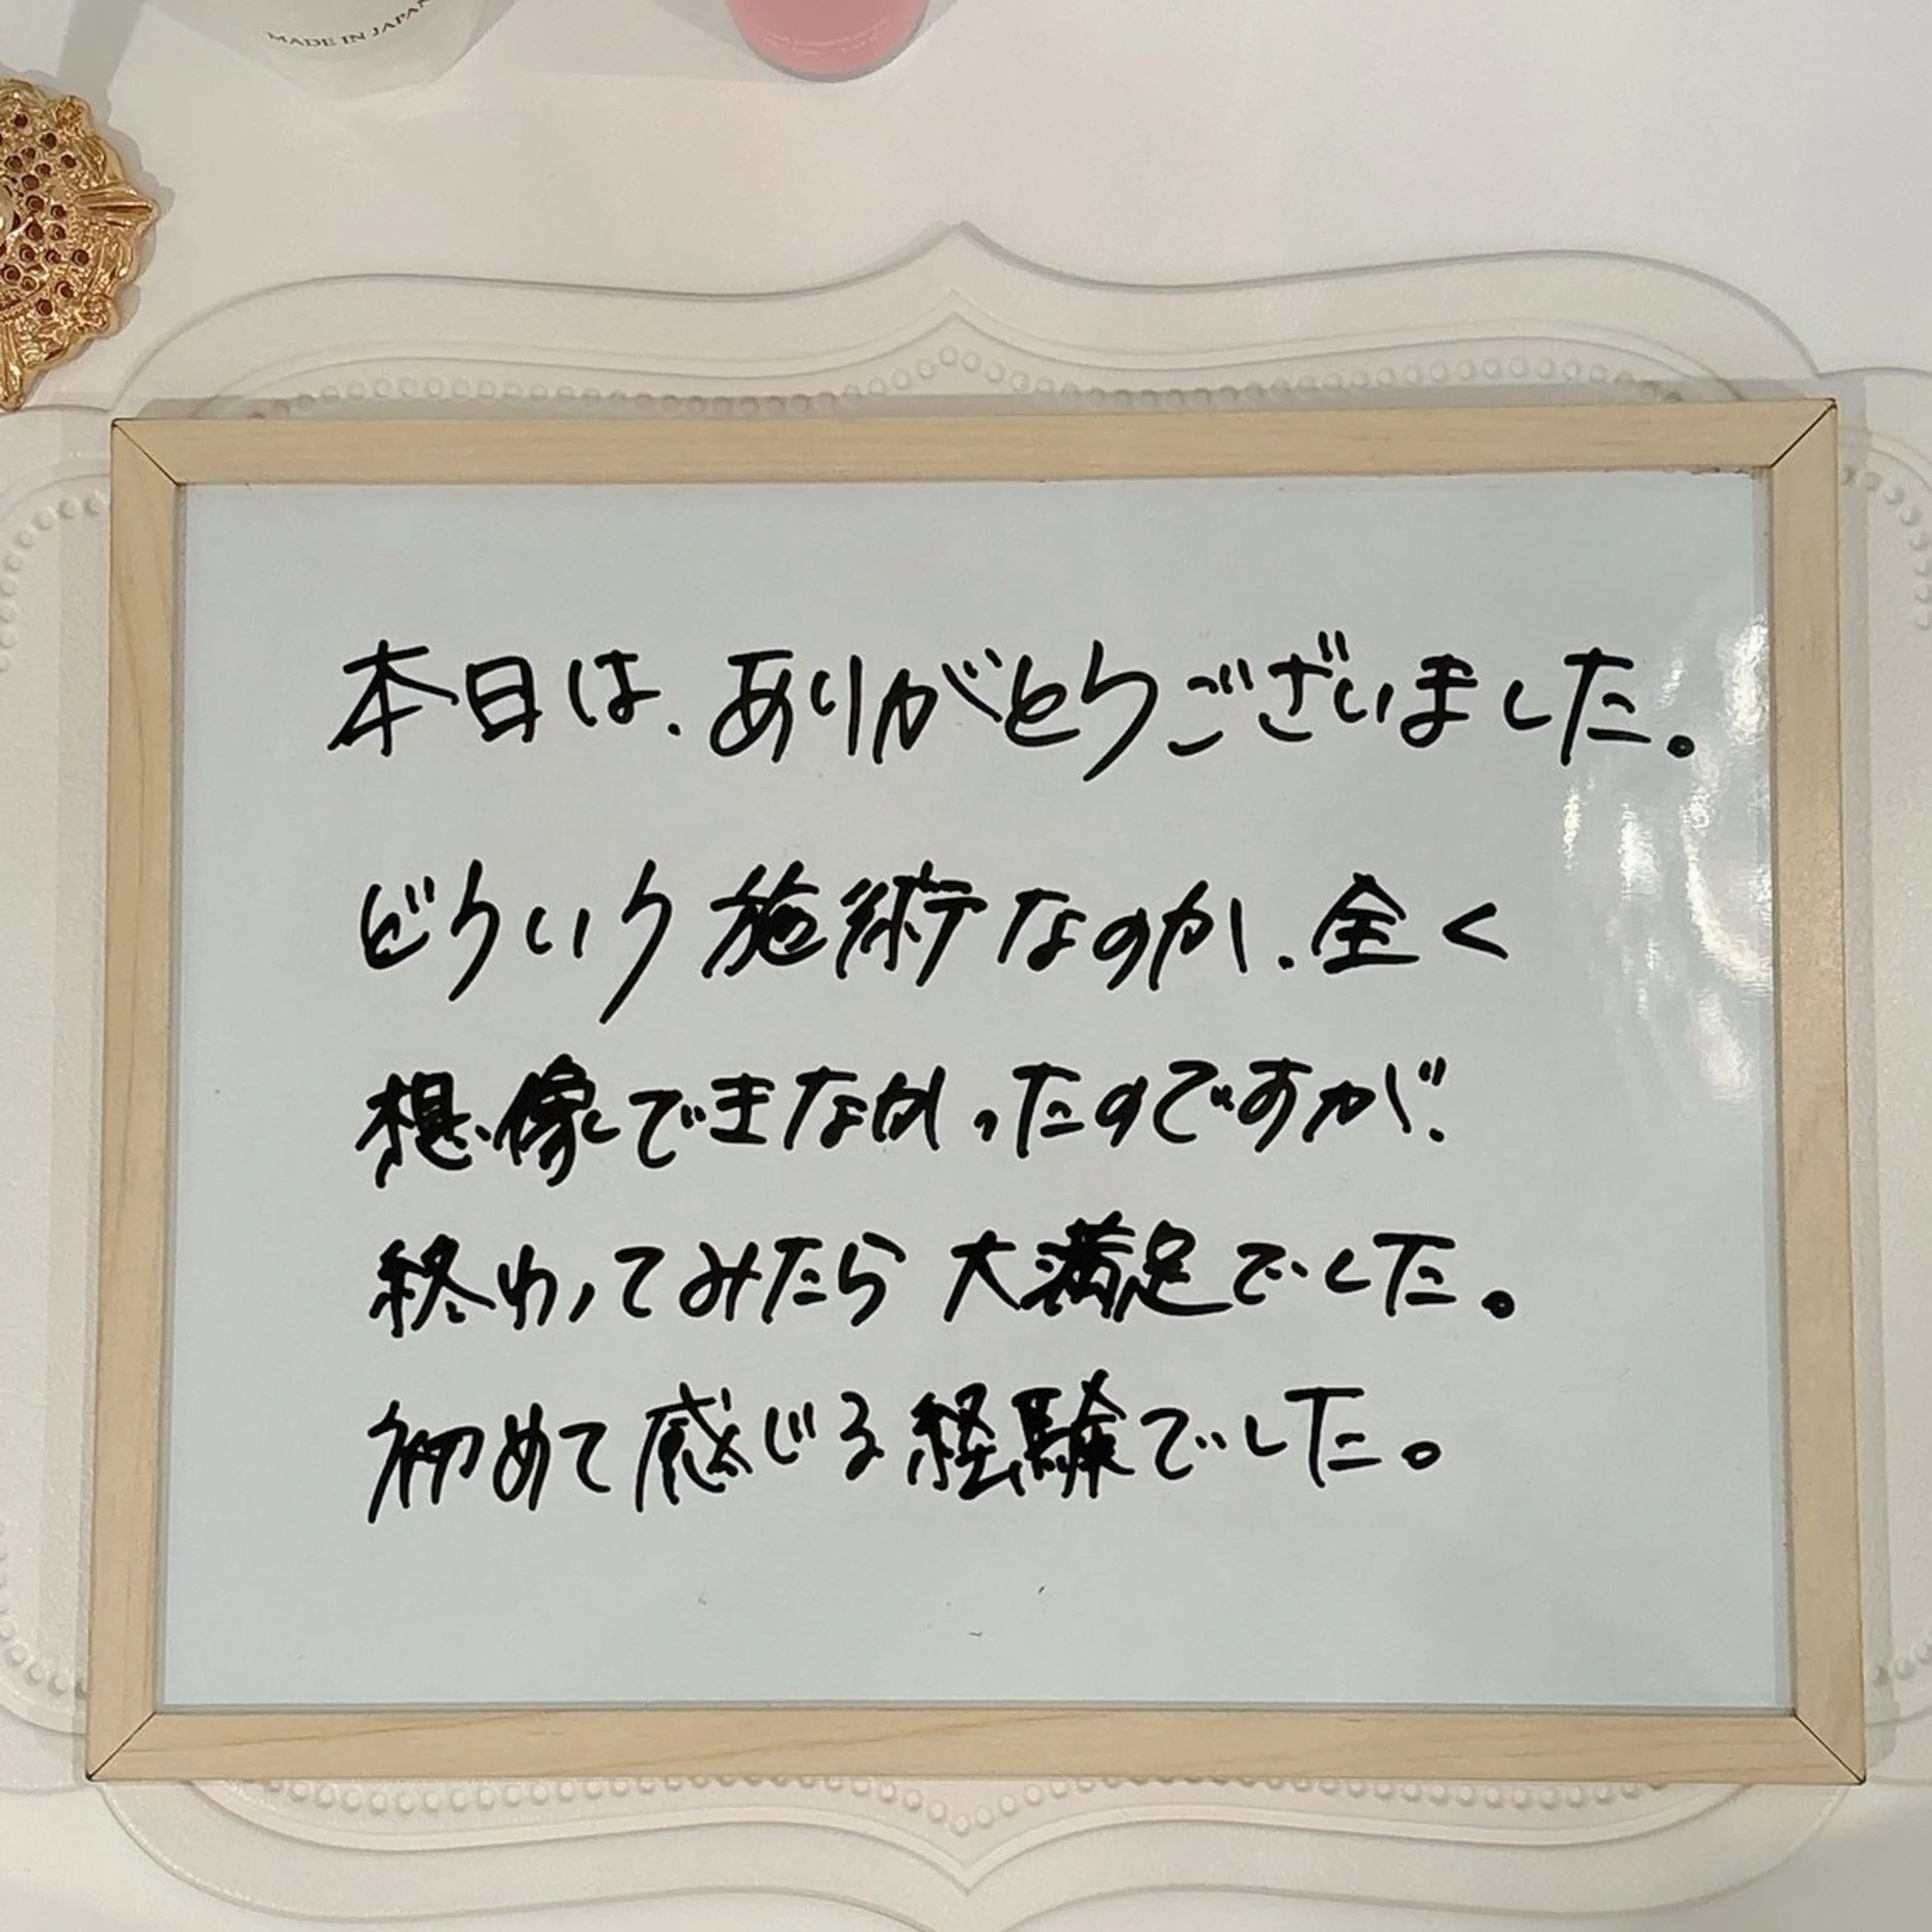 MADE IN JAPAN
本日は、ありがとうございました。
どういう施術なのか、全く
想像できなかったのですが、
終わってみたら大満足でした。
初めて感じる経験でした。